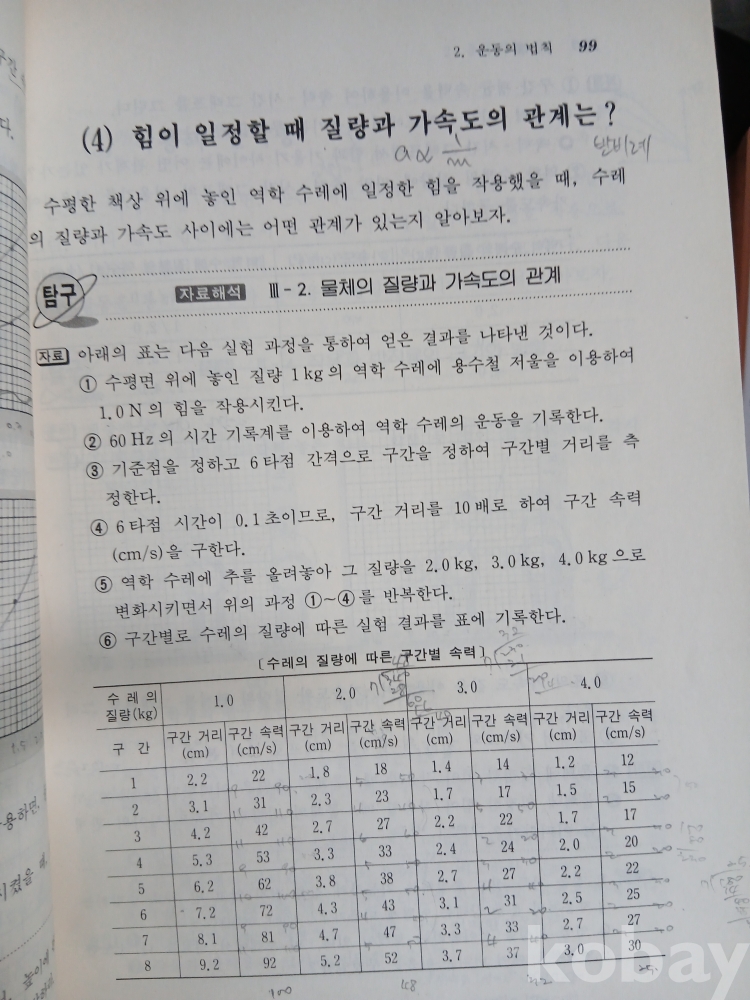 2. 운동의 법칙 99
(4) 힘이 일정할 때 질량과 가속도의 관계는?
a∝ 1/m 반비례
수평한 책상 위에 놓인 역학 수레에 일정한 힘을 작용했을 때, 수레
의 질량과 가속도 사이에는 어떤 관계가 있는지 알아보자.
탐구 자료해석 Ⅲ-2. 물체의 질량과 가속도의 관계
자료 아래의 표는 다음 실험 과정을 통하여 얻은 결과를 나타낸 것이다.
① 수평면 위에 놓인 질량 1kg의 역학 수레에 용수철 저울을 이용하여
1.0N의 힘을 작용시킨다.
② 60Hz의 시간 기록계를 이용하여 역학 수레의 운동을 기록한다.
③ 기준점을 정하고 6타점 간격으로 구간을 정하여 구간별 거리를 측
정한다.
④ 6타점 시간이 0.1초이므로, 구간 거리를 10배로 하여 구간 속력
(cm/s)을 구한다.
⑤ 역학 수레에 추를 올려놓아 그 질량을 2.0kg, 3.0kg, 4.0kg으로
변화시키면서 위의 과정 ①~④를 반복한다.
⑥ 구간별로 수레의 질량에 따른 실험 결과를 표에 기록한다.
〔수레의 질량에 따른 구간별 속력〕
수레의 질량(kg) 1.0 2.0 3.0 4.0
구간 구간 거리(cm) 구간 속력(cm/s) 구간 거리(cm) 구간 속력(cm/s) 구간 거리(cm) 구간 속력(cm/s) 구간 거리(cm) 구간 속력(cm/s)
1 2.2 22 1.8 18 1.4 14 1.2 12
2 3.1 31 2.3 23 1.7 17 1.5 15
3 4.2 42 2.7 27 2.2 22 1.7 17
4 5.3 53 3.3 33 2.4 24 2.0 20
5 6.2 62 3.8 38 2.7 27 2.2 22
6 7.2 72 4.3 43 3.1 31 2.5 25
7 8.1 81 4.7 47 3.3 33 2.7 27
8 9.2 92 5.2 52 3.7 37 3.0 30
100 48 32 25
kobay